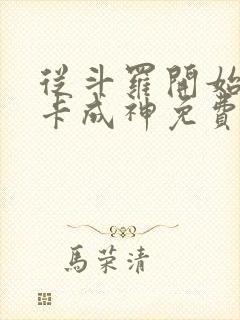 從斗羅開始
卡成神免費
馬荣清